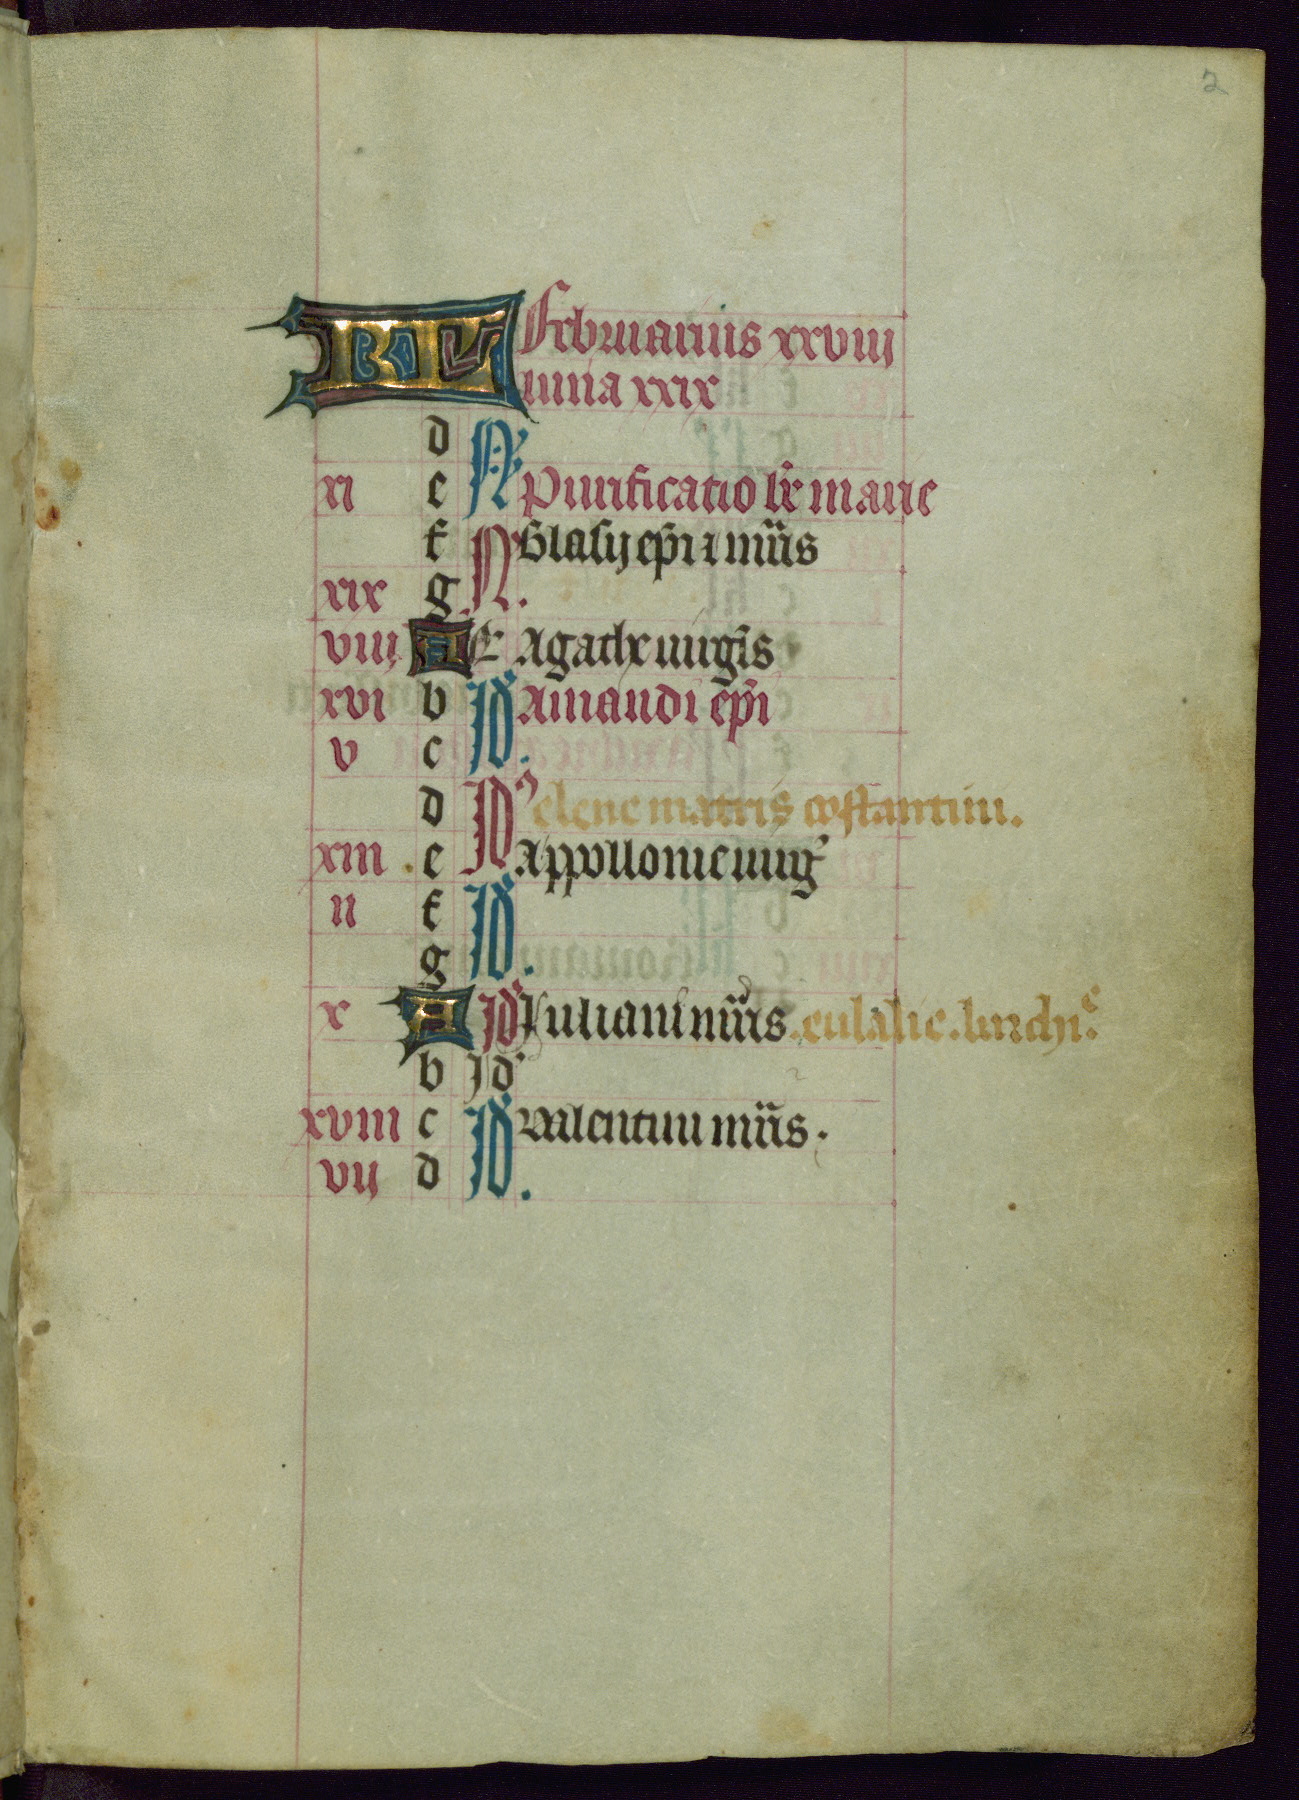 2
KL Februarius xxviii
luna xxix
d N
xi e Purificatio be marie
f N Blasij epi 7 mris
xix g
viii A E Agathe uirgis
xvi b Id Amandi epi
v c
d Id elene matris costantini.
xiii e Appollonie uirg
ii f Id
g
x A Id Iuliani mris . eulalie .
b Id
xviii c Id valentini mris .
vii d